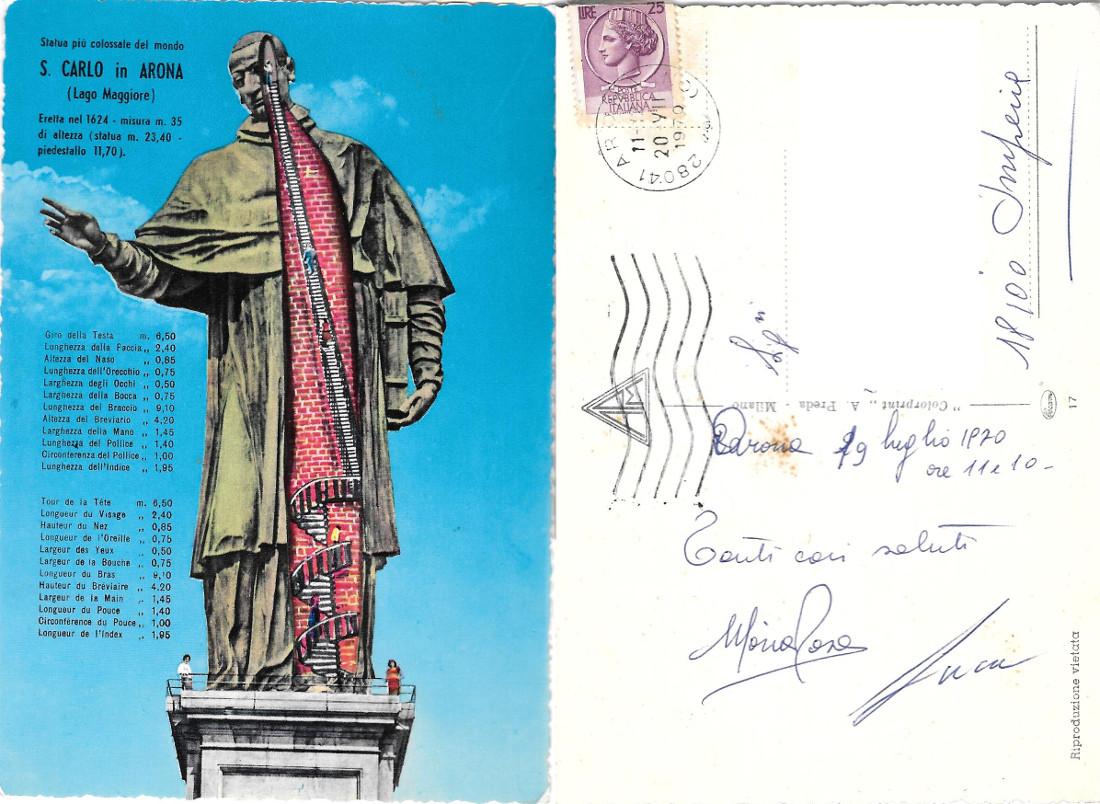 Statua più colossale del mondo
S. CARLO in ARONA
(Lago Maggiore)
Eretta nel 1624 - misura m. 35
di altezza (statua m. 23,40 -
piedestallo 11,70).
Giro della Testa m. 6,50
Lunghezza della Faccia „ 2,40
Altezza del Naso „ 0,85
Lunghezza dell'Orecchio „ 0,75
Larghezza degli Occhi „ 0,50
Larghezza della Bocca „ 0,75
Lunghezza del Braccio „ 9,10
Altezza del Breviario „ 4,20
Larghezza della Mano „ 1,45
Lunghezza del Pollice „ 1,40
Circonferenza del Pollice „ 1,00
Lunghezza dell'Indice „ 1,95
Tour de la Tête m. 6,50
Longueur du Visage „ 2,40
Hauteur du Nez „ 0,85
Longueur de l'Oreille „ 0,75
Largeur des Yeux „ 0,50
Largeur de la Bouche „ 0,75
Longueur du Bras „ 9,10
Hauteur du Bréviaire „ 4,20
Largeur de la Main „ 1,45
Longueur du Pouce „ 1,40
Circonférence du Pouce „ 1,00
Longueur de l'Index „ 1,95
LIRE 25
POSTE
REPVBBLICA
ITALIANA
28041 AR
11-
20 VII
1970
18100 Imperia
"Colorprint„ A. Preda - Milano
17
19 luglio 1970
ore 11 e 10-
Tanti cari saluti
Maria Rosa
Luca
Riproduzione vietata